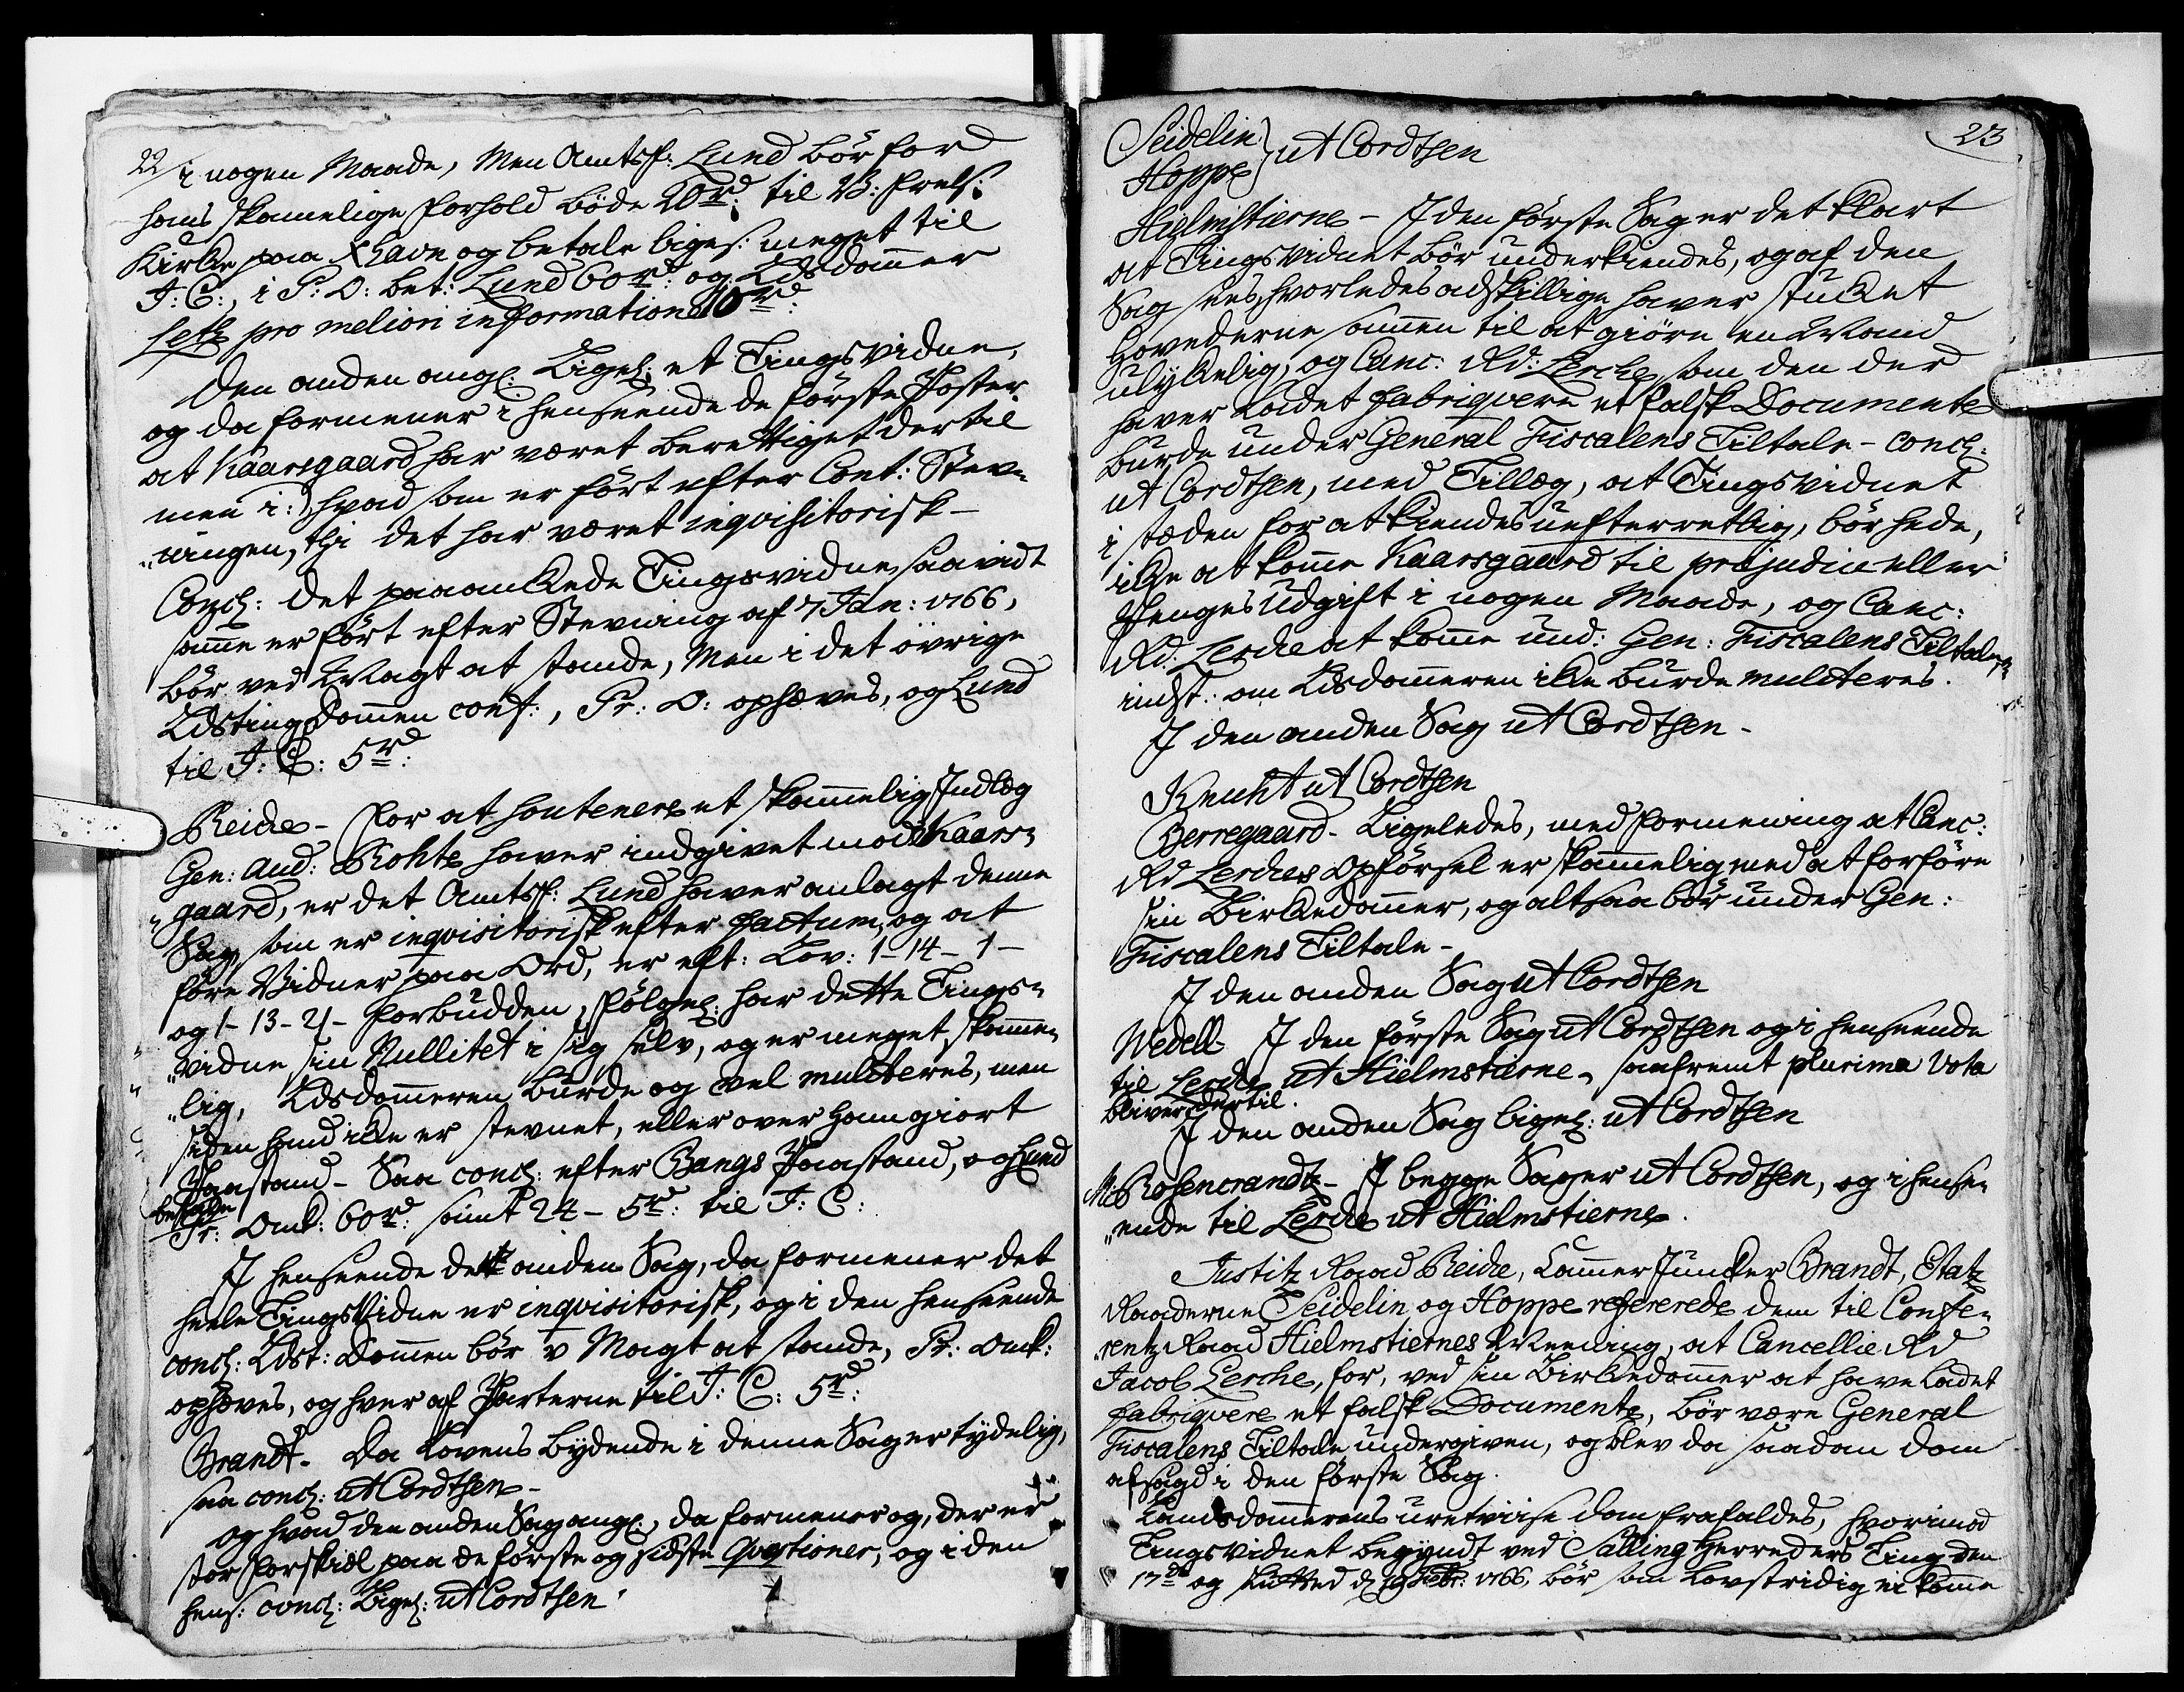 22/ i nogen Maade, Men Amtsf: Lund bør for
hans skamelige Forhold bøde 20rd: til V: Frels:
Kirke paa Xhavn og betale liges: meget til
J: C:, i P: O: bet: Lund 60rd: og Ldsdomer
Seth pro meliori informatione 10rd:
Den anden angl: Ligel: et Tingsvidne,
og da formener i henseende de første Poster
at Kaarsgaard har været berettiget dertil
men i: hvad som er ført efter Cont: Stev=
"ningen, thi det har været inqvisitorisk –
Concl: det paaankede Tingsvidne, saavidt
samme er ført efter Stevning af 7 Jan: 1766,
bør ved Magt at stande, Men i det øvrige
Ldstingdommen conf:, Pr: O: ophæves, og Lund
til J: C: 5rd:
Reiche – For at soutenere et skammelig Indlæg
Gen: Aud: Rohte haver indgivet mod Kaars=
"gaard, er det Amtsf: Lund haver anlagt denne
Sag som er inqvisitorisk efter factum, og at
føre Vidner paa Ord, er eft: Lov: 1–14–1–
og 1–13–21– forbudden, følgel: har dette Tings=
"vidne sin Nullitet i sig selv, og er meget skamme=
"lig, Ldsdommeren burde og vel mulcteres, men
siden hand icke er stevnet, eller over ham giort
Paastand – Saa concl: efter Bangs Paastand, og Lund
betaler
Pr: Omk: 60rd: samt 24 – 5rd: til J: C:
I henseende dette anden Sag, da formener det
heele TingsVidne er inqvisitorisk, og i den henseende
concl: Ldst: Dommen bør v Magt at stande, Pr: Omk:
ophæves, og hver af Parterne til J: C: 5rd:
Brandt – Da Lovens bydende i denne Sag er tydelig,
saa concl: ut Cordtsen –
og hvad den anden Sag angl:, da formener og, der er
stor Forskiæl paa de første og sidste Qvæstioner, og i den
hens: concl: Ligel: ut Cordtsen.
23
Seidelin
Hoppe } ut Cordtsen
Hielmstierne – I den første Sag er det klart
at Tingsvidnet bør underkiendes, og af den
Sag sees, hvorledes adskillige haver stucket
Hovederne sammen til at giøre en Mand
ulykkelig, og Canc: Rd: Lerche som den der
haver ladet fabriqvere et falsk Documente
burde under General Fiscalens Tiltale – concl:
ut Cordtsen, med Tillæg, at Tingsvidnet
i stæden for at kiendes uefterretlig, bør hede,
icke at komme Kaarsgaard til præjudice eller
Penges Udgift i nogen Maade, og Canc:
Rd: Lerche at komme und: Gen: Fiscalens Tiltale,
indst: om Ldsdommeren icke burde mulcteres.
I den anden Sag ut Cordtsen –
Knuht ut Cordtsen
Berregaard – Ligeledes, med formening at Canc:
Rd Lerches Opførsel er skammelig med at forføre
sin Birkedommer, og altsaa bør under Gen:
Fiscalens Tiltale –
I den anden Sag ut Cordtsen
Wedell – I den første Sag ut Cordtsen og i henseende
til Lerche ut Hielmstierne, saafremt plurima vota
bliver dertil.
I den anden Sag ligel: ut Cordtsen
Rosencrandtz – I begge Sager ut Cordtsen, og i hense=
"ende til Lerche ut Hielmstierne.
Justitz Raad Reiche, CammerJuncker Brandt, Etatz
Raaderne Seidelin og Hoppe refererede dem til Confe=
"rentz Raad Hielmstiernes Meening, at Cancellie Rd
Jacob Lerche, for, ved sin Birkedommer at have ladet
fabriqvere et falsk Documente, bør være General
Fiscalens Tiltale undergiven, og blev da saadan Dom
afsagd i den første Sag.
Landsdommerens uretviise Dom frafaldes, hvorimod
Tingsvidnet begyndt ved Salling Herreders Ting den
17de og sluttet d 19 Febr: 1766, bør som Lovstridig ei komme